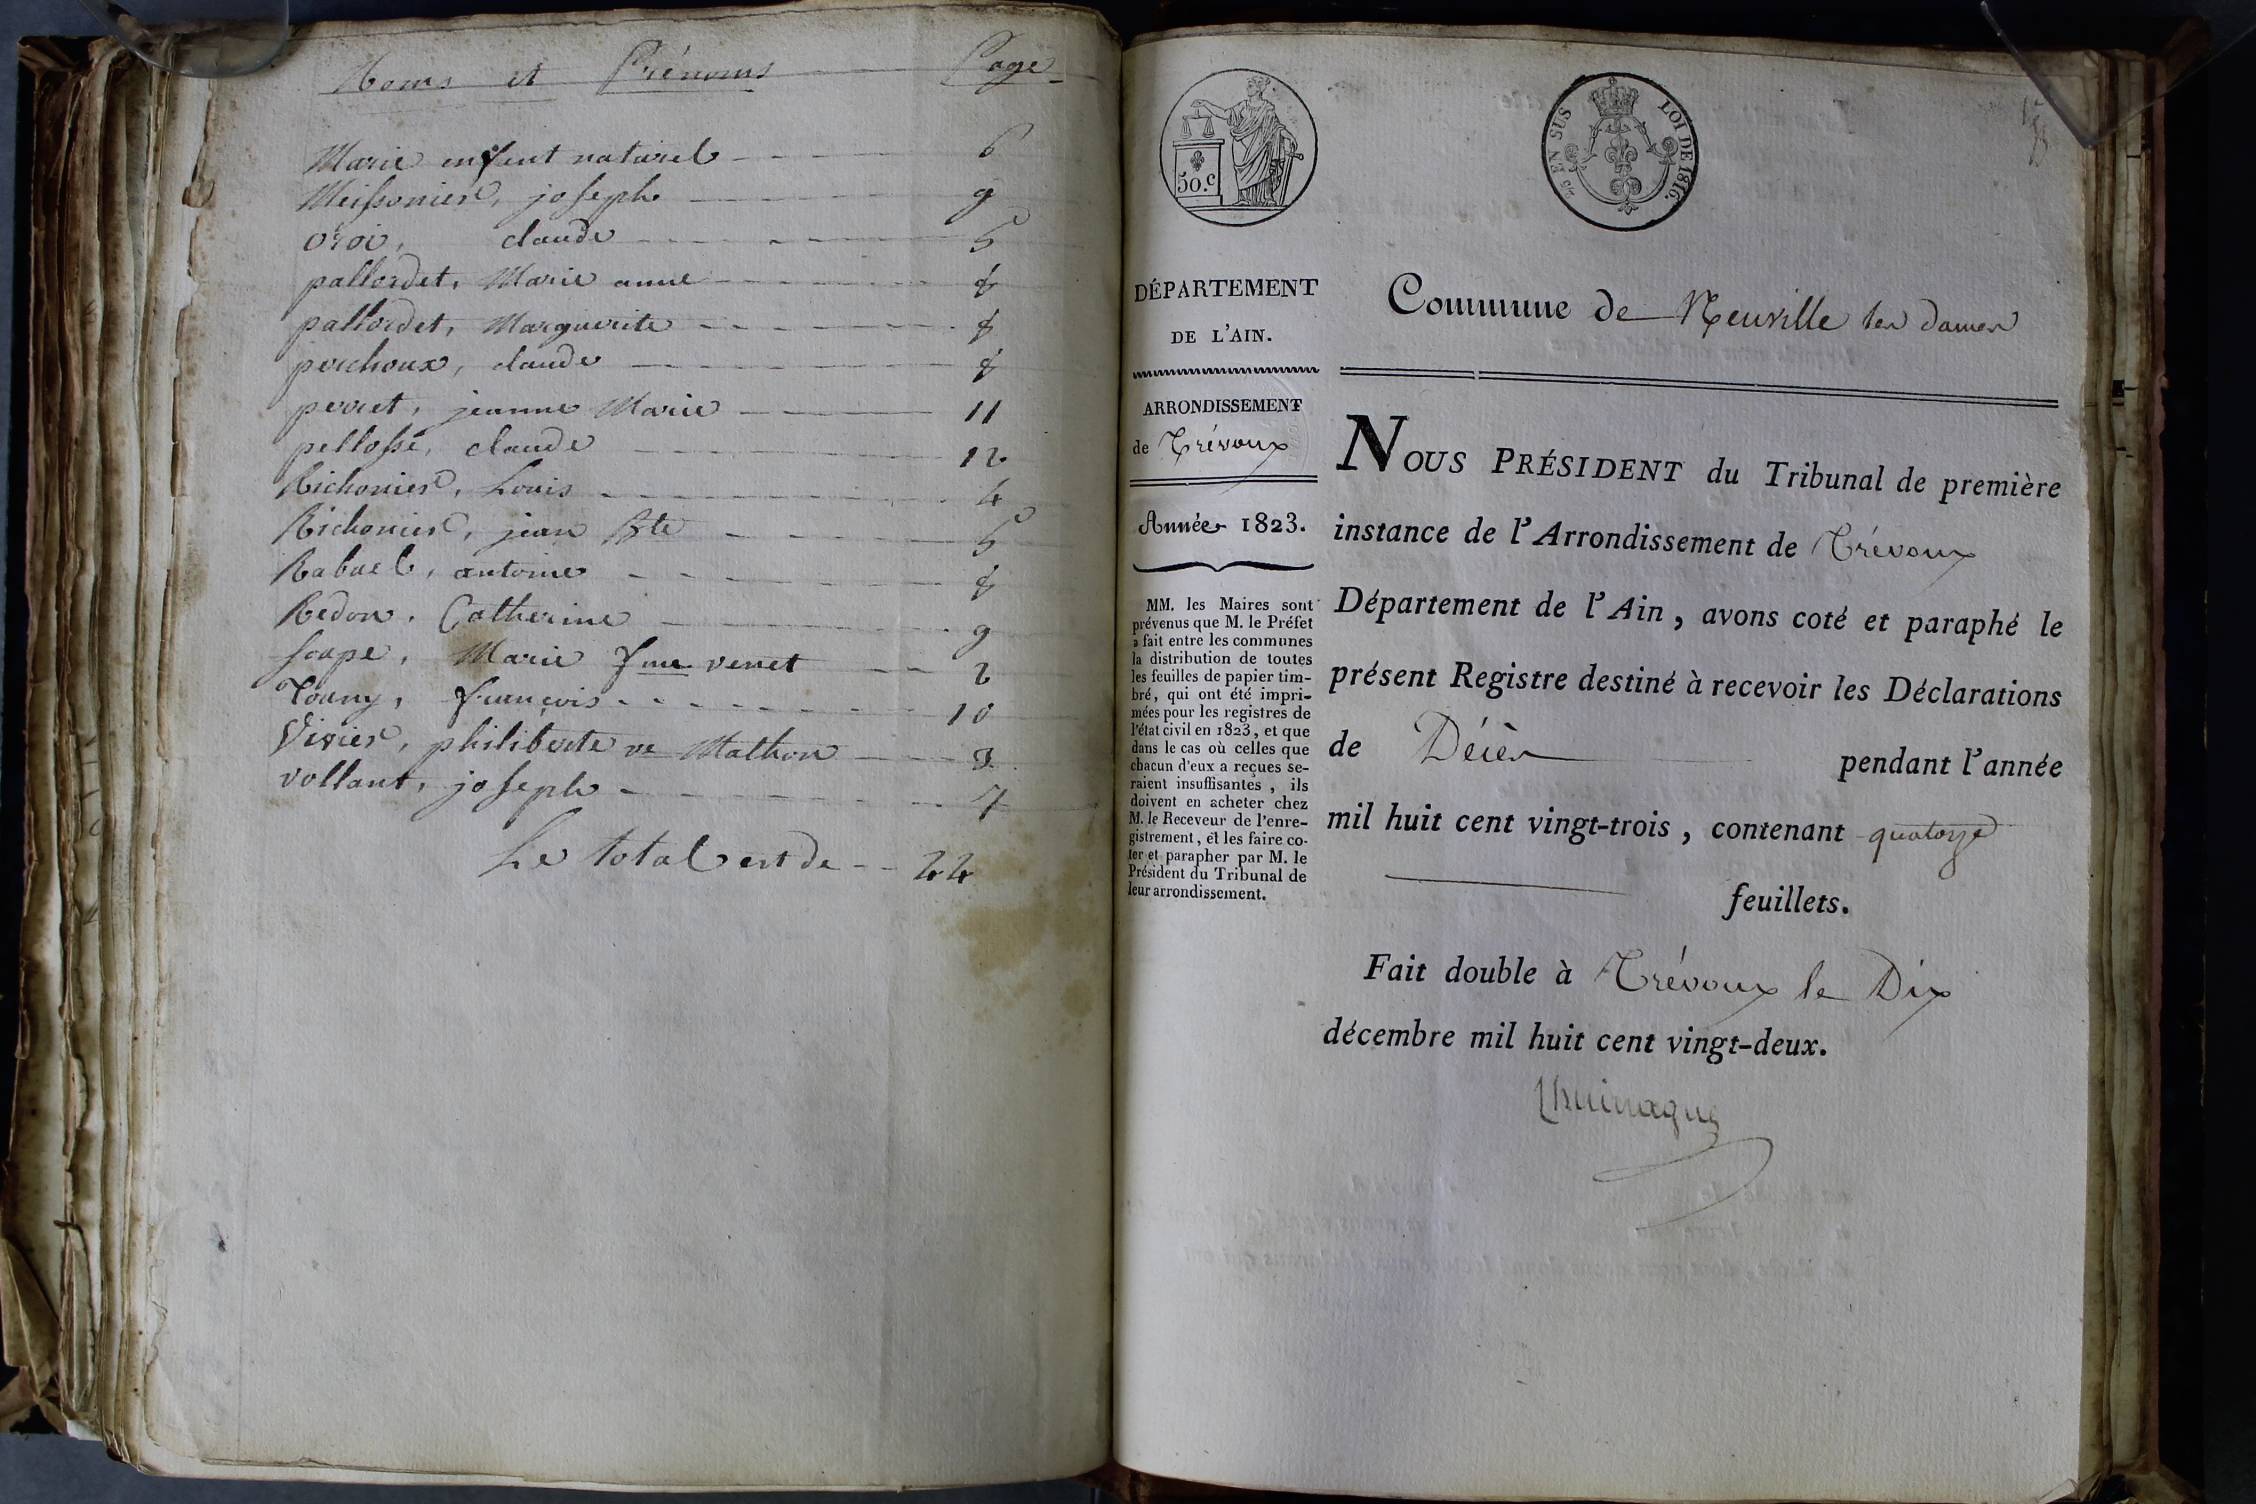 Noms et Prénoms Page
Marie enfant naturel 6
Meissonier, joseph 9
oroi, claude 5
pallordet, Marie anne 8
pallordet, Marguerite 8
perchoux, claude 8
perret, jeanne Marie 11
pellossé, claude 12
Richonier, Louis 4
Richonier, jean Bte 5
Rabuel, antoine 8
Redon, Catherine 9
soupe, Marie fme venet 2
Touny, françois 10
Vivier, philiberte ve Mathon 3
vollant, joseph 7
Le total est de 44
50.c
5.e EN SUS LOI DE 1816.
DÉPARTEMENT
DE L'AIN.
ARRONDISSEMENT
de Trévoux
Année 1823.
MM. les Maires sont
prévenus que M. le Préfet
a fait entre les communes
la distribution de toutes
les feuilles de papier tim-
bré, qui ont été impri-
mées pour les registres de
l'état civil en 1823, et que
dans le cas où celles que
chacun d'eux a reçues se-
raient insuffisantes, ils
doivent en acheter chez
M. le Receveur de l'enre-
gistrement, et les faire co-
ter et parapher par M. le
Président du Tribunal de
leur arrondissement.
Commune de Neuville les dames
NOUS PRÉSIDENT du Tribunal de première
instance de l'Arrondissement de Trévoux
Département de l'Ain, avons coté et paraphé le
présent Registre destiné à recevoir les Déclarations
de Décès pendant l'année
mil huit cent vingt-trois, contenant quatorze
feuillets.
Fait double à Trévoux le Dix
décembre mil huit cent vingt-deux.